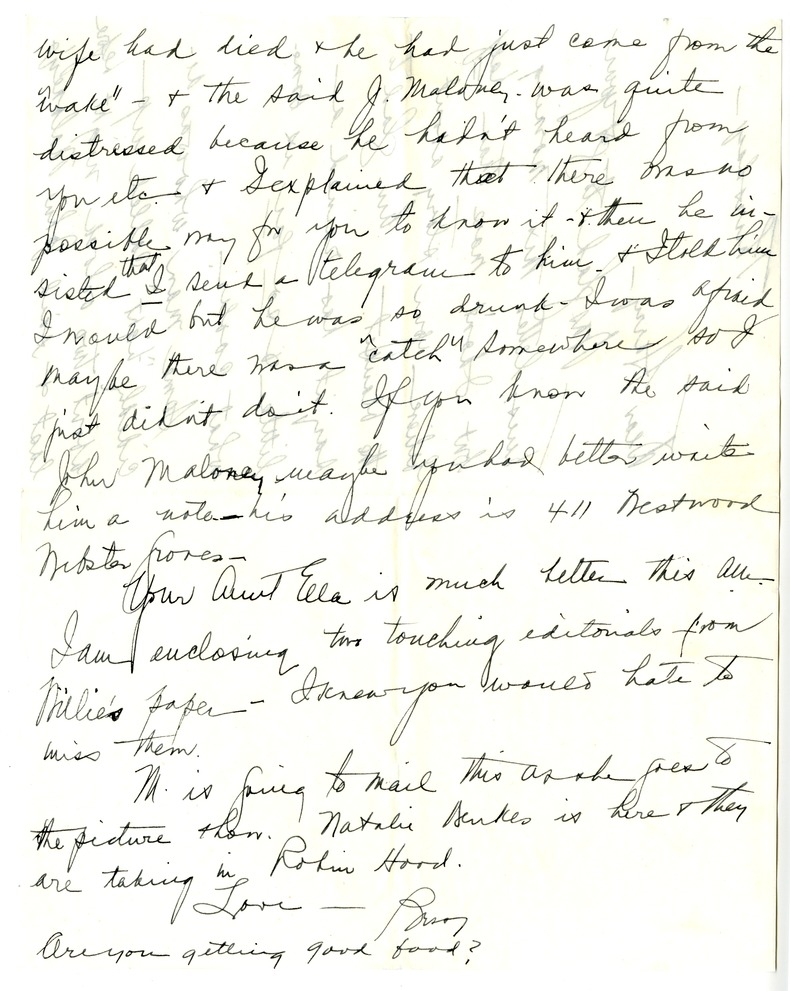 wife had died & he had just come from the
"wake" - & the said J. Maloney - was quite
distressed because he hadn't heard from
you etc. & I explained that there was no
possible way for you to know it - & then he in-
sisted that I send a telegram to him. & I told him
I would but he was so drunk - I was afraid
maybe there was a "catch" somewhere so I
just didn't do it. If you know the said
John Maloney maybe you had better write
him a note - his address is 411 Westwood
Webster Groves -
Your Aunt Ella is much better this
I am enclosing two touching editorials from
Willie's paper - I knew you would hate to
miss them.
M. is going to mail this as she goes to
the picture show. Natalie is here & they
are taking in Robin Hood.
Love -
Are you getting good food?